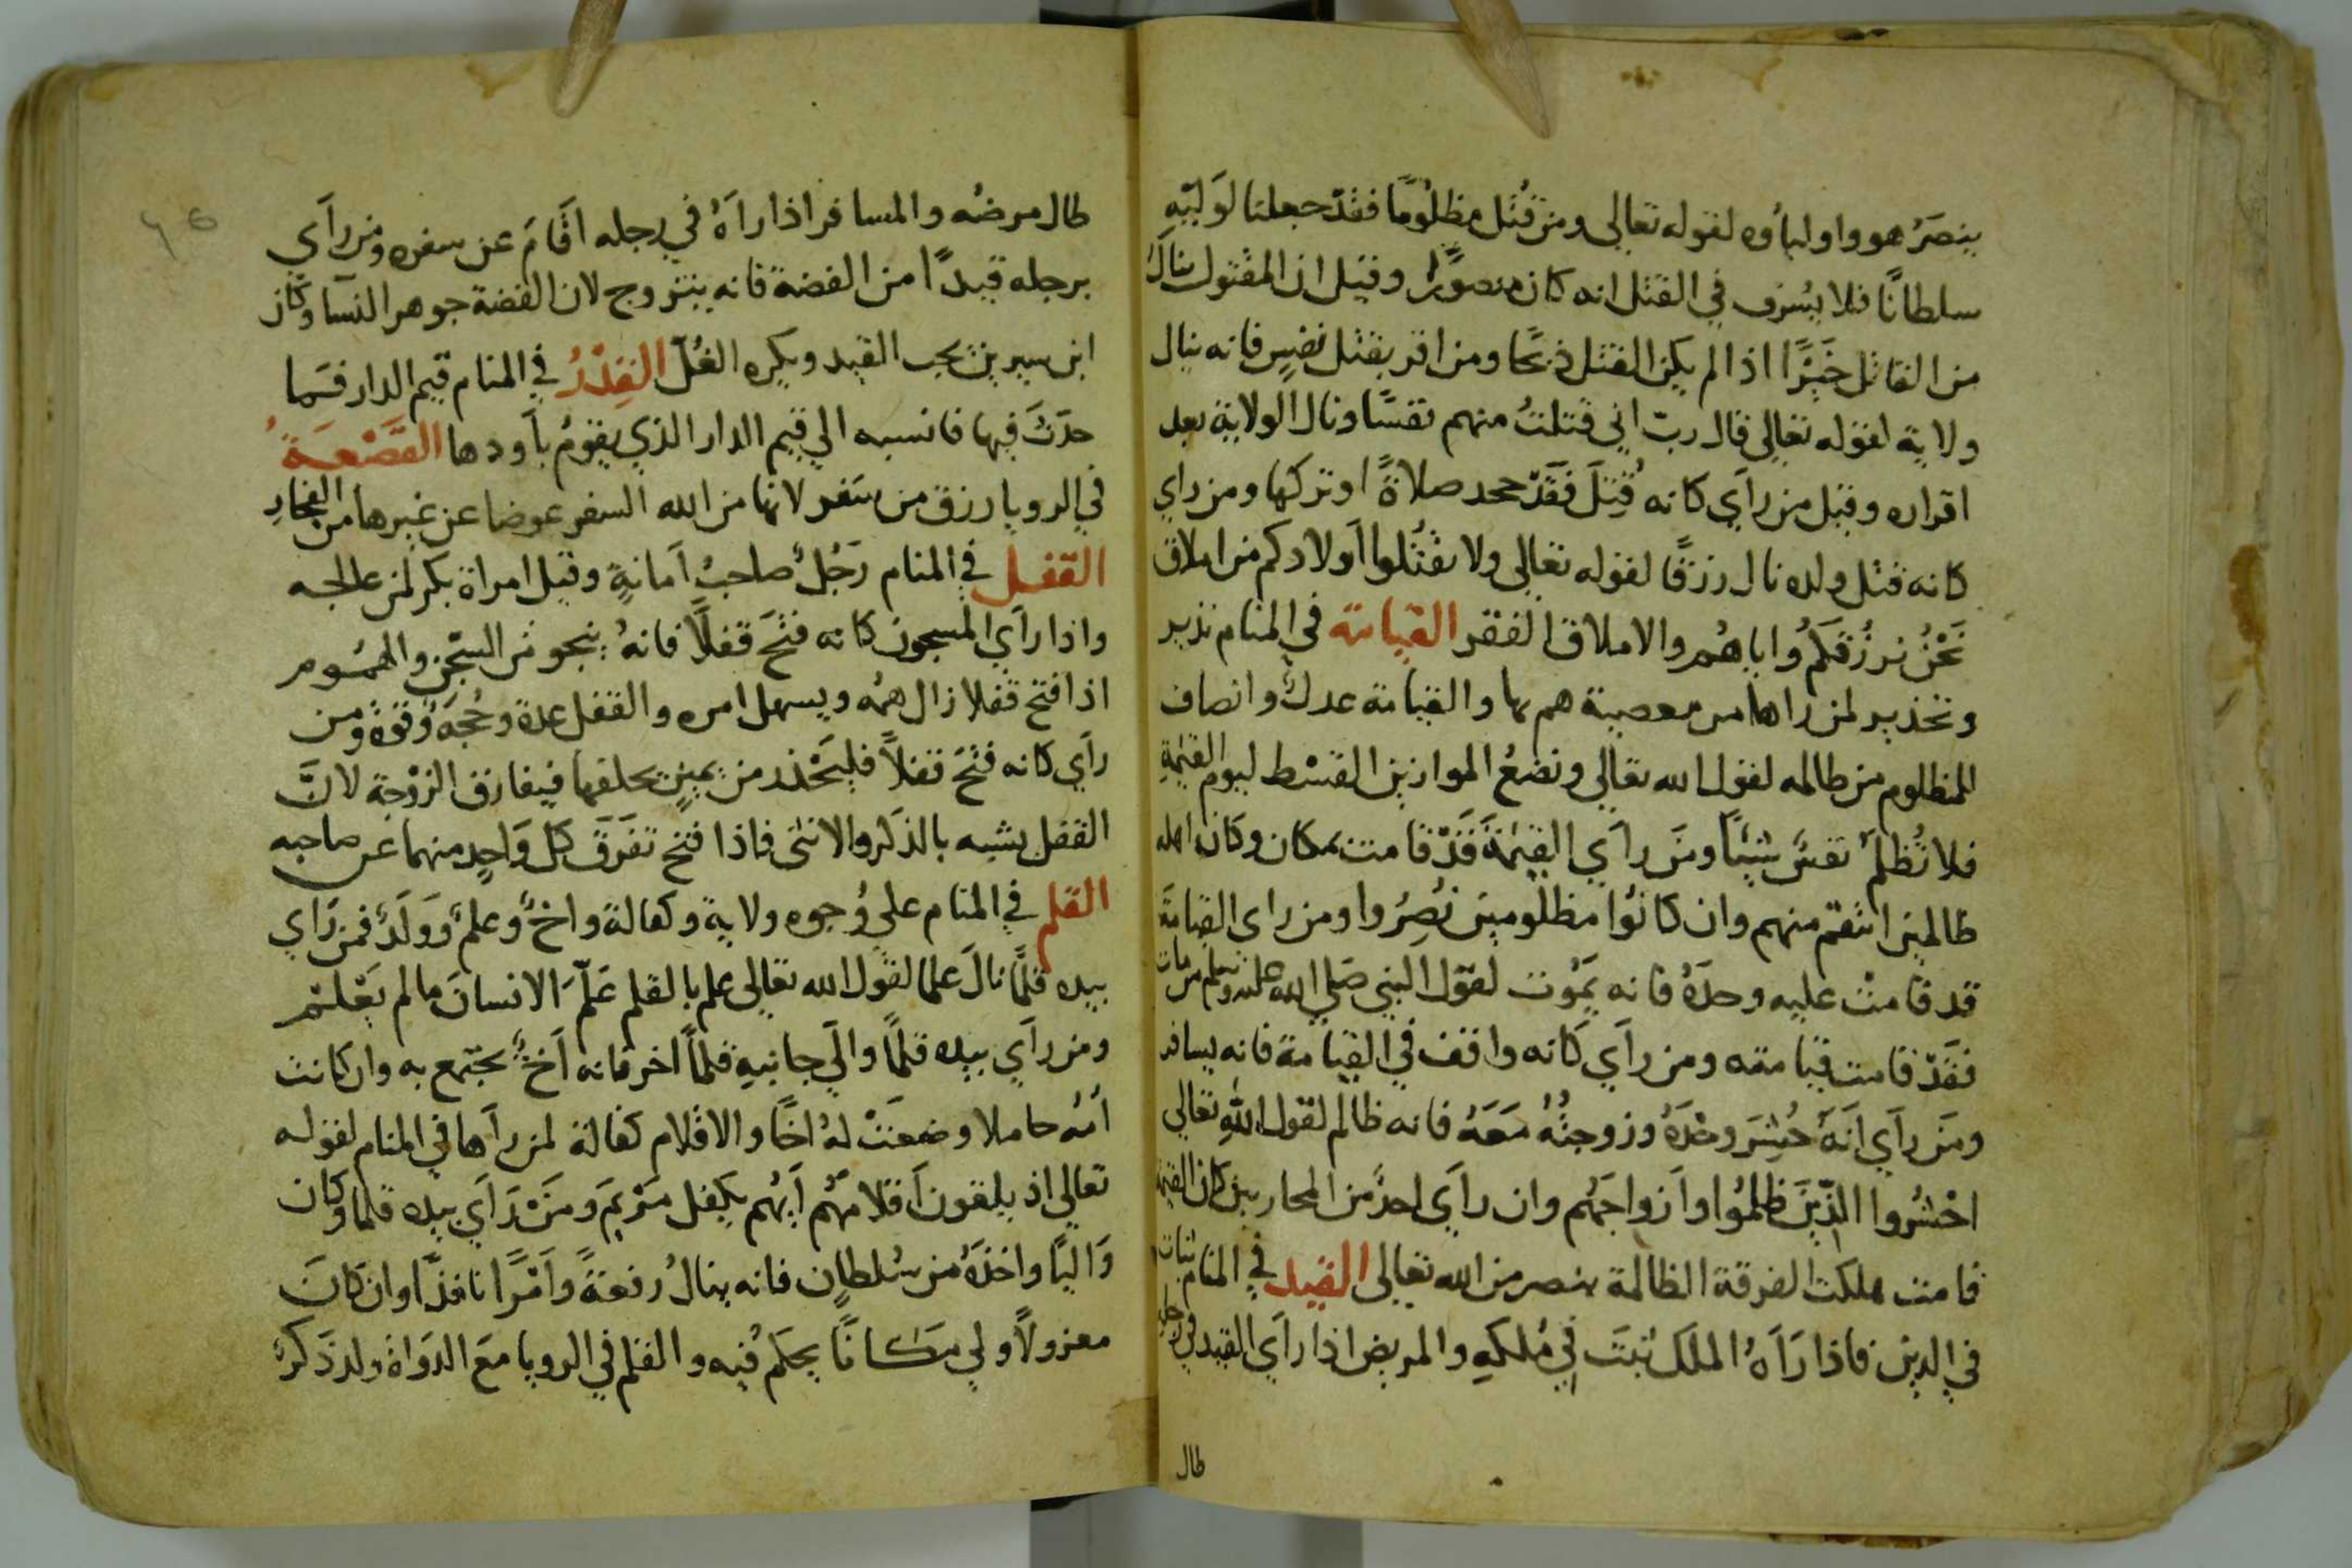 ينصَرُ هو واولياؤه لقوله تعالى ومن قُتل مظلُومًا فقدْ جعلنا لوَليّهِ
سلطانًا فلا يسْرف في القتل انه كان منصورًا وقيل ان المقتول ينال
من القاتل خَيْرًا اذا لم يكن القتل ذبحًا ومن اقر بقتل نفسٍ فانه ينال
ولاية لقوله تعالى قال ربّ اني قتلتُ منهم نفسًا ونال الولاية بعد
اقراره وقيل من رآي كانه قُتِلَ فَقَدْ جحد صلاةً او تركها ومن راي
كانه قتل ولده نال رزقًا لقوله تعالى ولا تقتُلوا اَولادكم من املاق
نَحْنُ نرزُقكمُ واياهُم والاملاق الفقر القيامة في المنام نذير
وتحذير لمن راها من معصية هم بها والقيامة عدلٌ وانصاف
المظلوم من ظالمه لقول الله تعالى ونضعُ الموازين القسْط ليوم القيٰمةِ
فلا تُظلمُ نفسٌ شيئًا ومَن رآي القيٰمةَ قَدْ قامت بمكان وكان اهله
ظالمين انتقم منهم وان كانُوا مظلومين نُصِرُوا ومن راى القيامَة
قد قامتْ عليه وحدَهُ فانه يَمُوت لقول النبي صَلي الله عليه وسلم من مات
فقَدْ قامت قيامته ومن رآي كَانه واقف في القيامة فانه يسافر
ومَن رآي اَنهُ حُشِرَ وحْدَهُ وزوجتُهُ مَعَهُ فانه ظالم لقول اللهِ تعالى
احْشُروا الذّينَ ظلمُوا وَاَزواجَهُم وان رآي احدٌ من المحاربين كان القيمة
قامت هلكت الفرقة الظالمة بنصر من الله تعالى القيد في المنام ثبات
في الدين فاذا رَاَهُ الملَك ثبَتَ في مُلكهِ والمريض اذا رآي القيد في رجله
طال
طال مرضُه والمسافر اذا راَهُ في رجله اقَامَ عن سفره ومن رآي
برجله قيدًا من الفضة فانه يتزوج لان الفضة جوهر النسآ وكان
ابن سيرين يحب القيد ويكره الغُلّ القِدْرُ في المنام قيم الدار فما
حدَثَ فيها فانسبه الي قيم الدار الذي يقومُ بآودها القَصْعَةُ
في الرويا رزق من سَفر لانها من اله السفر عوضا عن غيرها من الفخار
القفل في المنام رَجُلٌ صاحبُ اَمانةٍ وقيل امراة بكر لمن عالجه
واذا رآي المسجون كانه فتَحَ قفلًا فانهُ ينجو من السّجن والمهموم
اذا فتح قفلا زال همُه ويسهل امره والقفل عدة وحُجةٌ وقوةٌ ومن
رآي كانه فتَحَ قفلاً فليَحْذر من يمينٍ يحلفها فيفارق الزوْجة لانَّ
القفل يشبه بالذكر والانثى فاذا فتح تفَرقَ كل وَاحِدٍ منهما عن صاحبه
القلم في المنام علي وُجوه ولاية وكفالة واخٌ وعلمٌ وَوَلَدٌ فمن رَاي
بيده قلَمًا نالَ علما لقول الله تعالى علم بالقلم عَلَّمَ الانسانَ ما لم يَعْلَمْ
ومن رآي بيده قلمًا والَي جانبِهِ قلمًا اخر فانه اَخٌ يجتمع به وان كانت
اُمُه حاملا وضعَتْ لهُ اخًا والاقلام كفالة لمن رآها في المنام لقوله
تعالى اذ يلقون اَقلامَهُم اَيهُم يكفل مَرْيمَ ومَنْ رَآي بيده قلما وكان
وَاليًا واخذَهُ من سُلطانٍ فانه ينالُ رفعةً واَمْرًا نافذًا وان كانَ
معزولاً ولي مَكَانًا يحكم فيه والقلم في الرويا معَ الدوَاة ولد ذكرٌ